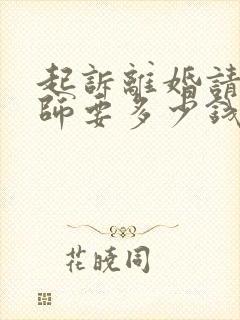 起訴離婚請
師要多少錢
花曉同